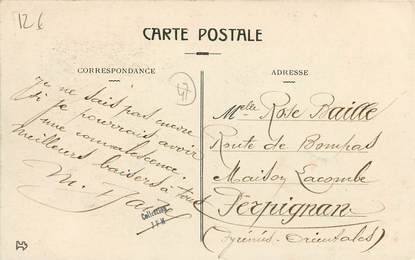 126
CARTE POSTALE
CORRESPONDANCE
ADRESSE
Je ne sais pas encore
si je pourrais avoir
une convalescence.
meilleurs baisers à tous
M.
Collection
Melle Rose Baille
Route de Bompas
Maison Lacombe
Perpignan
(Pyrénées-Orientales)